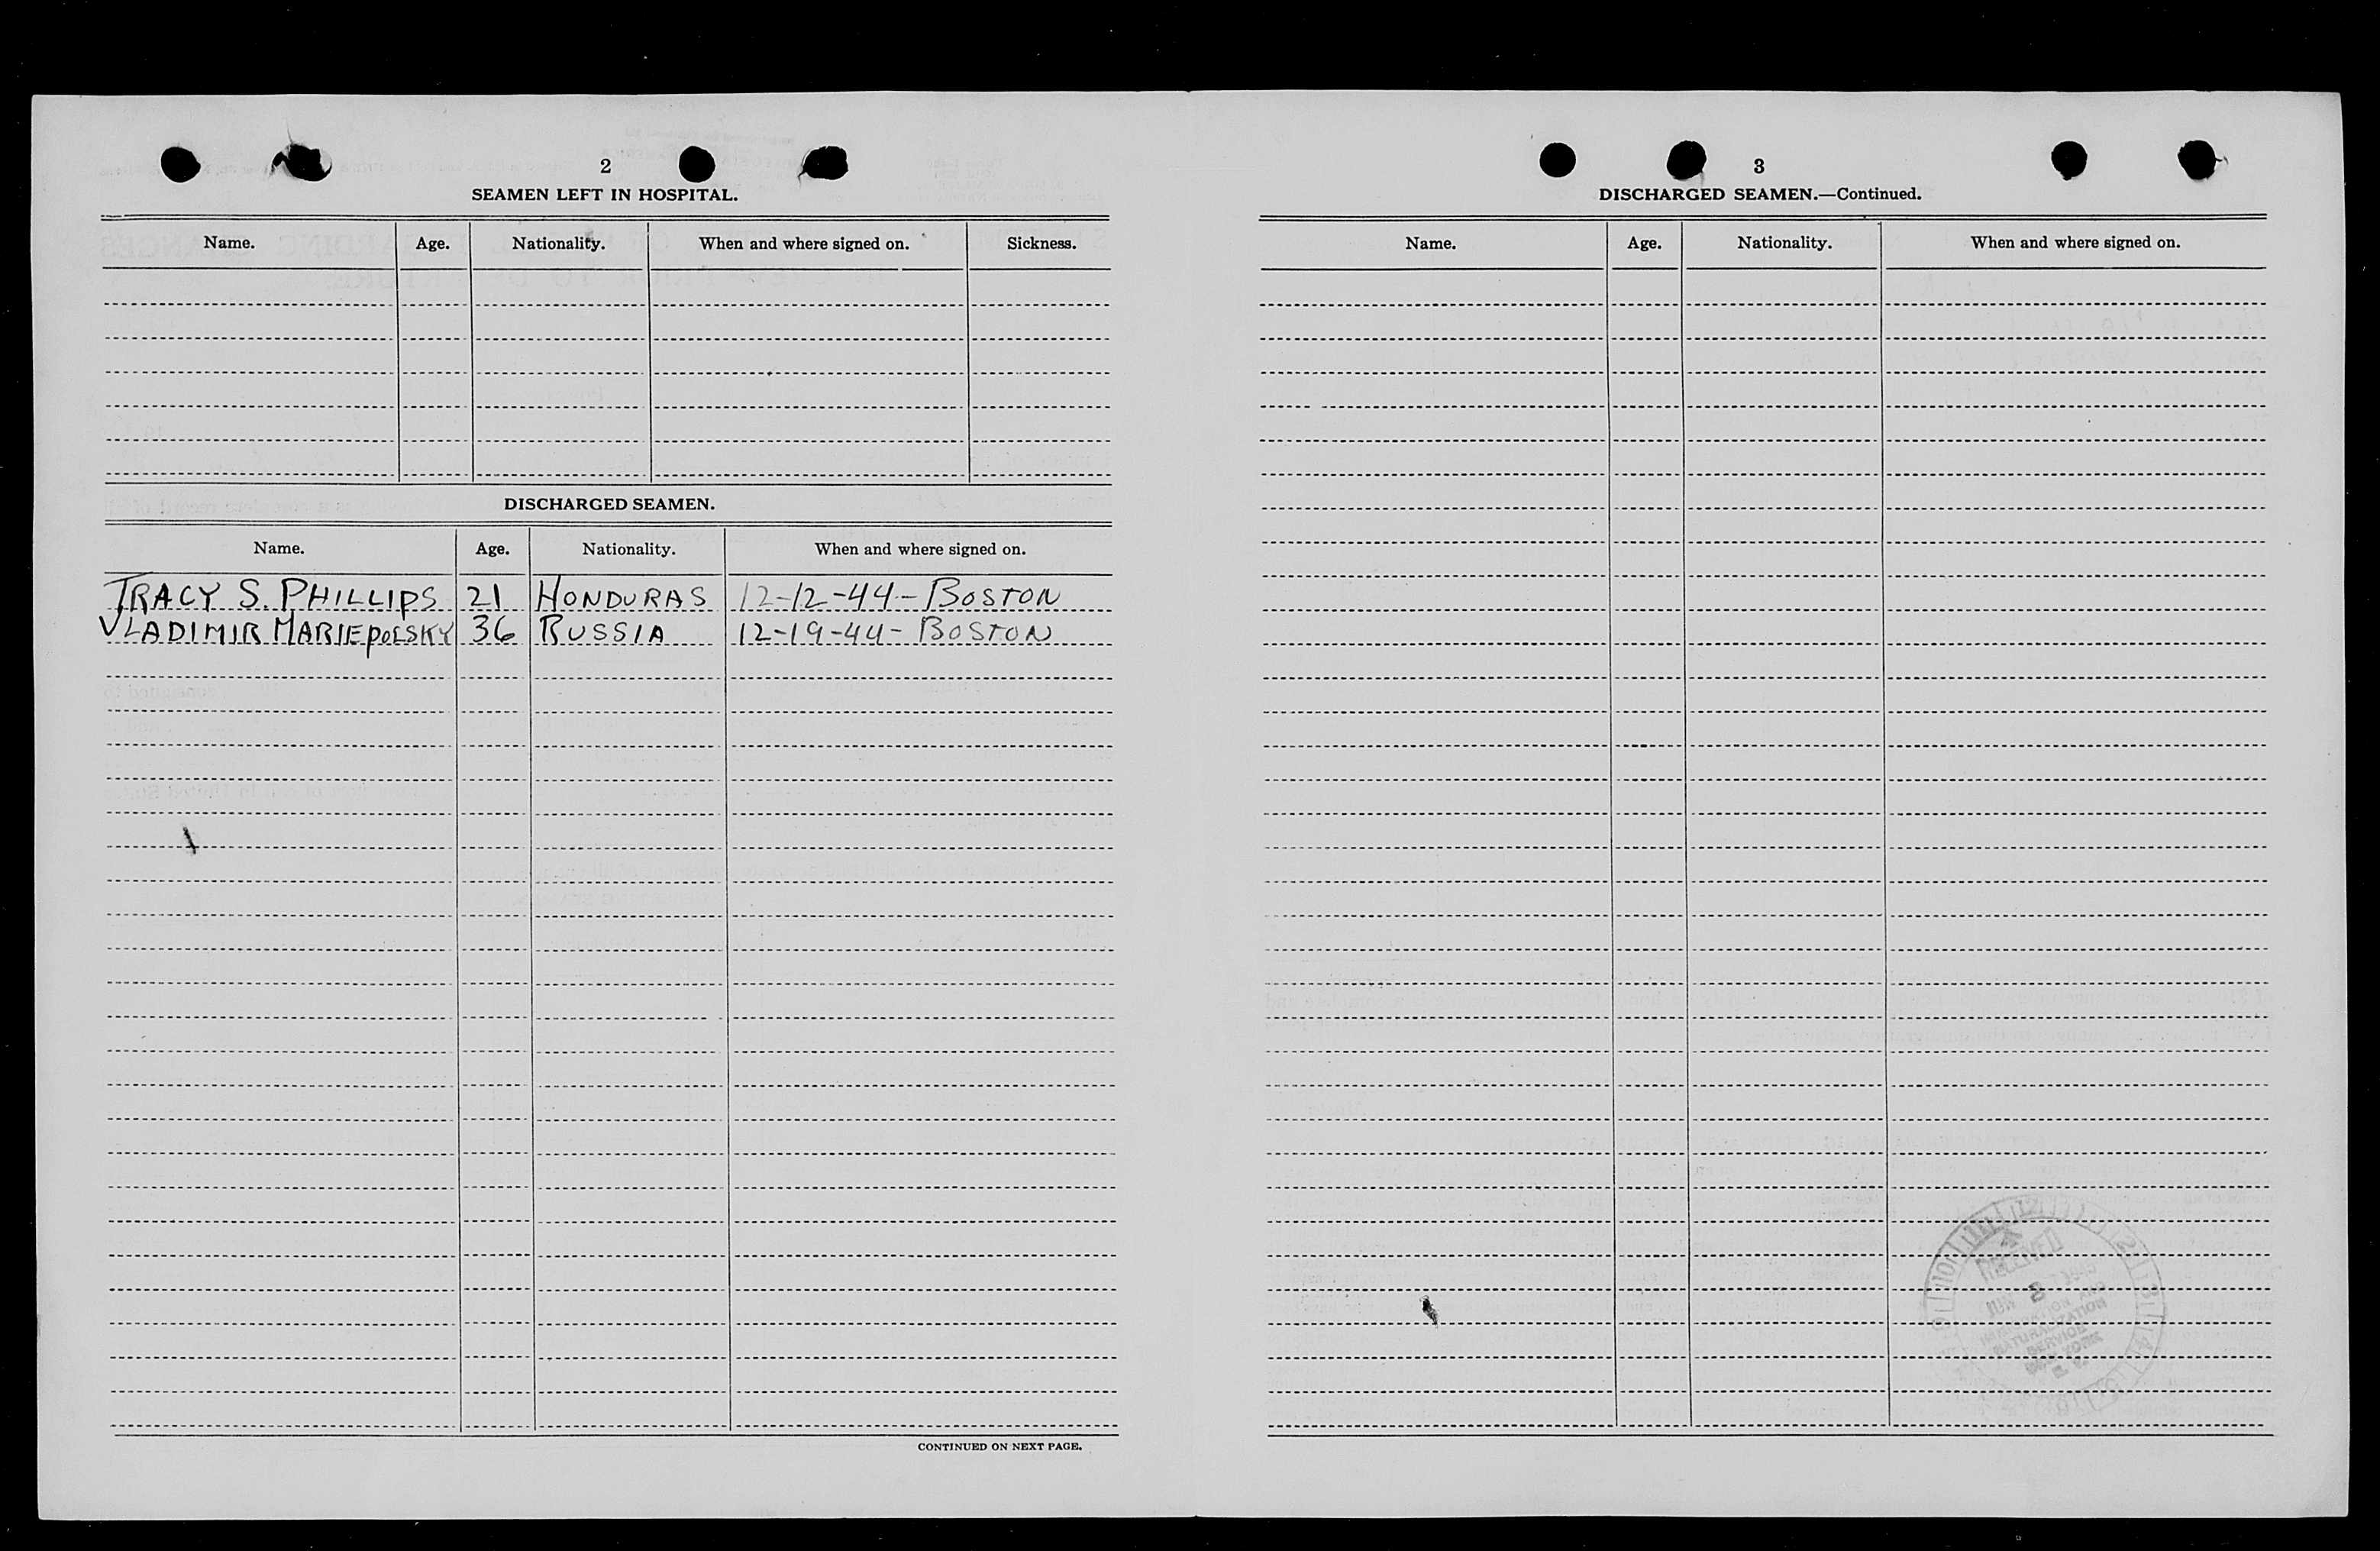 2
SEAMEN LEFT IN HOSPITAL.
Name. Age. Nationality. When and where signed on. Sickness.
DISCHARGED SEAMEN.
Name. Age. Nationality. When and where signed on.
TRACY S. PHILLIPS 21 HONDURAS 12-12-44-BOSTON
VLADIMIR MARIEPOLSKY 36 RUSSIA 12-19-44-BOSTON
CONTINUED ON NEXT PAGE.
3
DISCHARGED SEAMEN.—Continued.
Name. Age. Nationality. When and where signed on.
RECEIVED